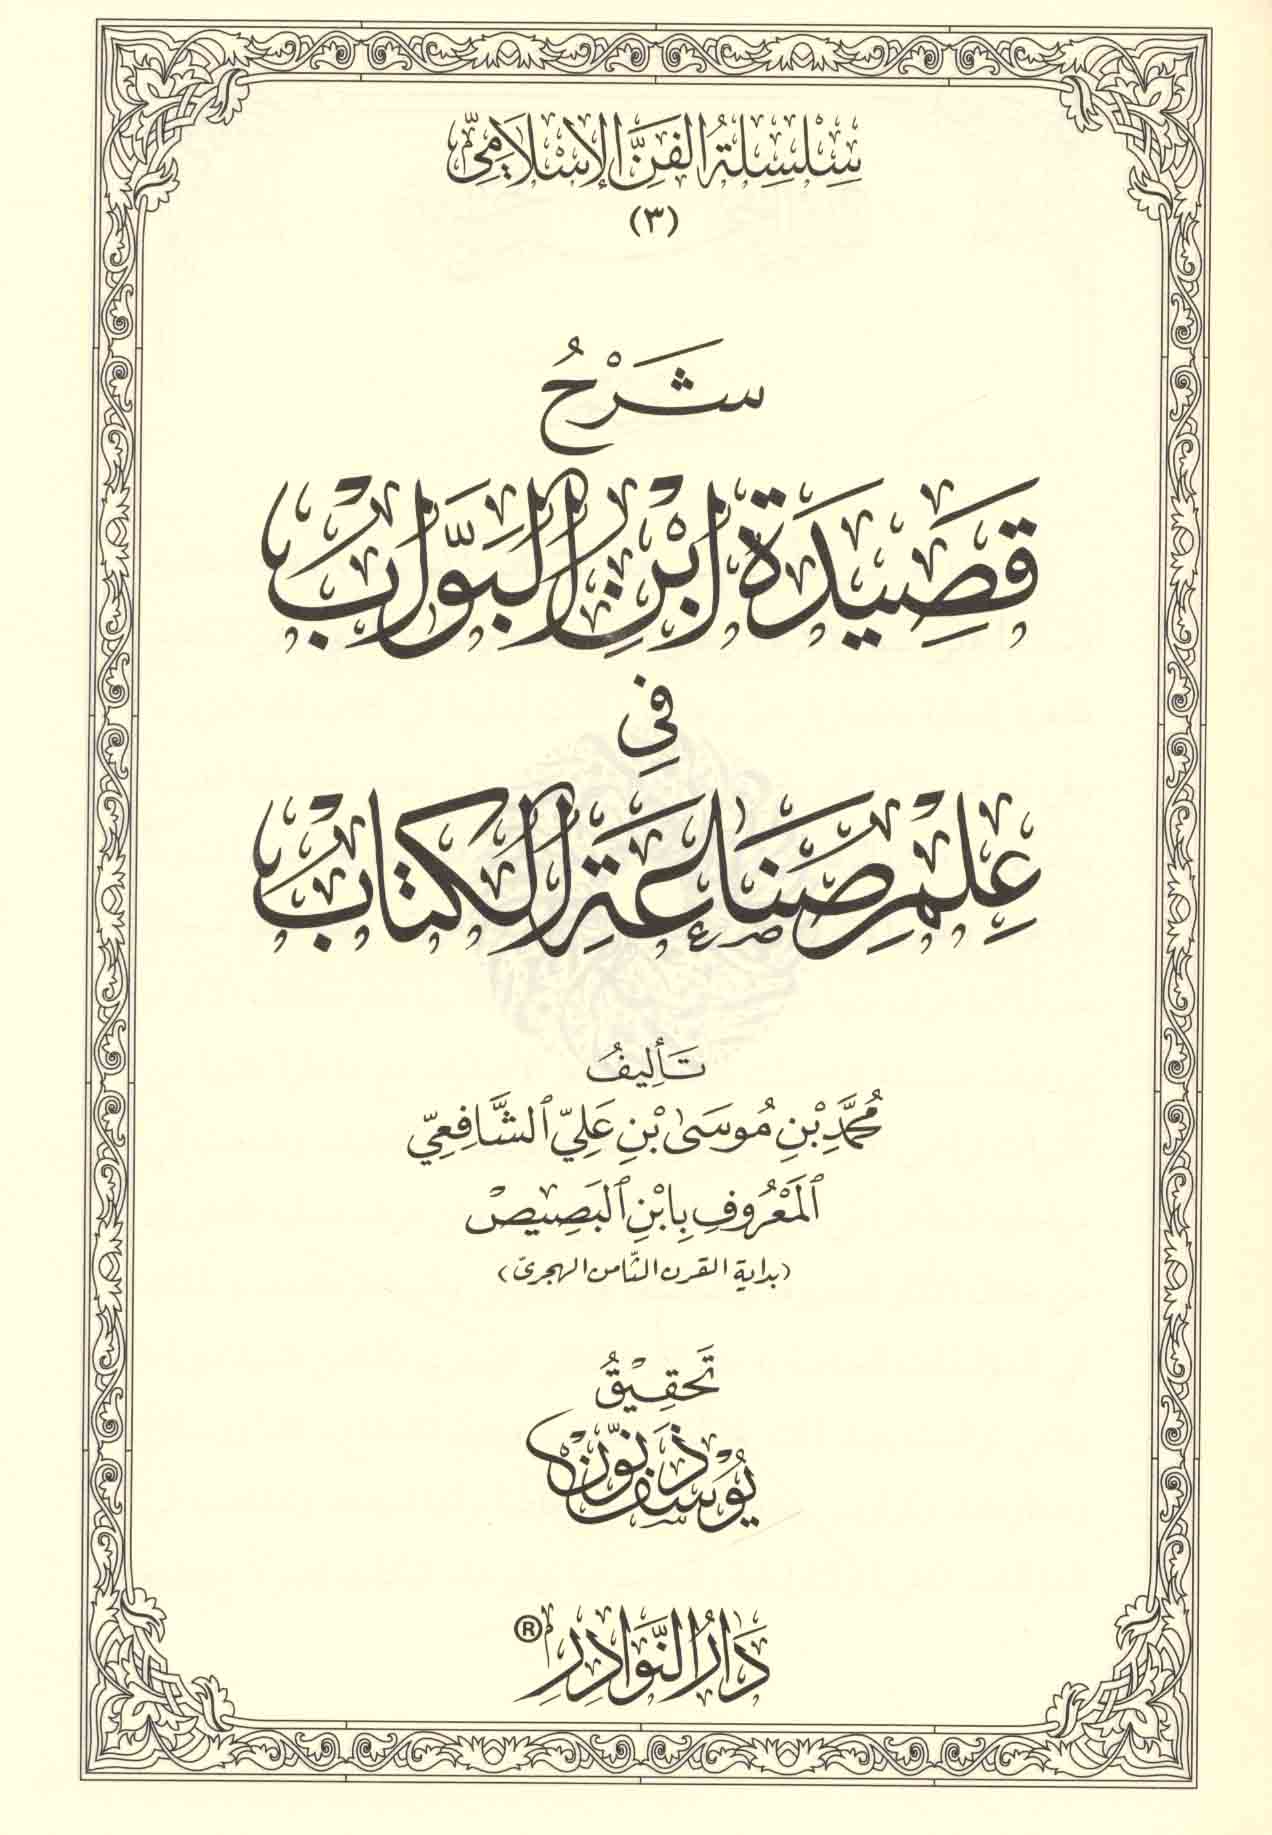 سِلْسِلَةُ الفَنِّ الإِسْلَامِيِّ
(٣)
شَرْحُ
قَصِيدَةِ ابْنِ البَوَّابِ
فِي
عِلْمِ صِنَاعَةِ الكِتَابِ
تَأْلِيفُ
مُحَمَّدِ بْنِ مُوسَىٰ بْنِ عَلِيّ ٱلشَّافِعِيّ
ٱلمَعْرُوفِ بِابْنِ ٱلبَصِيصْ
(بداية القرن الثامن الهجري)
تَحْقِيْقُ
يُوسُفْ ذَنُّونْ
دَارُ النَّوَادِرِ ®